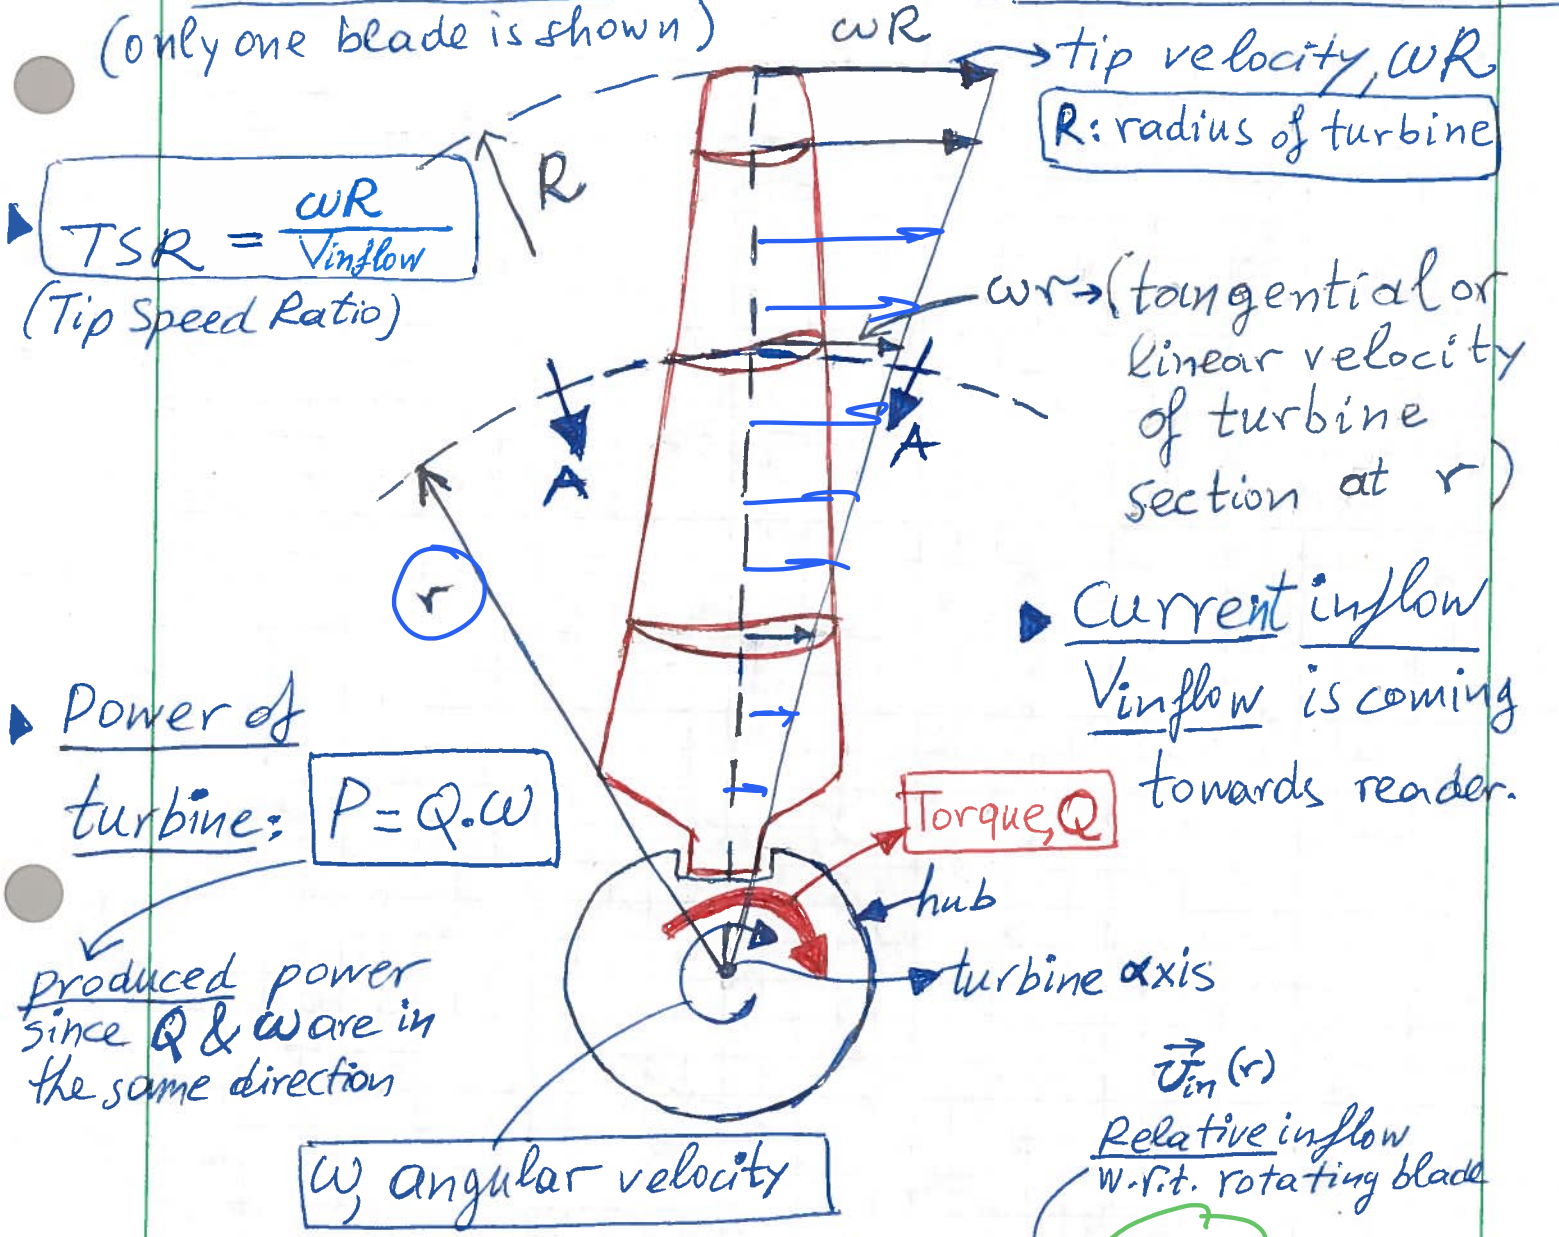 (only one blade is shown)
ωR
tip velocity, ωR
R: radius of turbine
R
TSR = ωR / Vinflow
(Tip Speed Ratio)
ωr → (tangential or
linear velocity
of turbine
section at r)
A
A
r
Current inflow
Vinflow is coming
towards reader.
Power of
turbine: P = Q.ω
Torque, Q
hub
turbine axis
produced power
since Q & ω are in
the same direction
ω, angular velocity
v⃗in (r)
Relative inflow
w.r.t. rotating blade